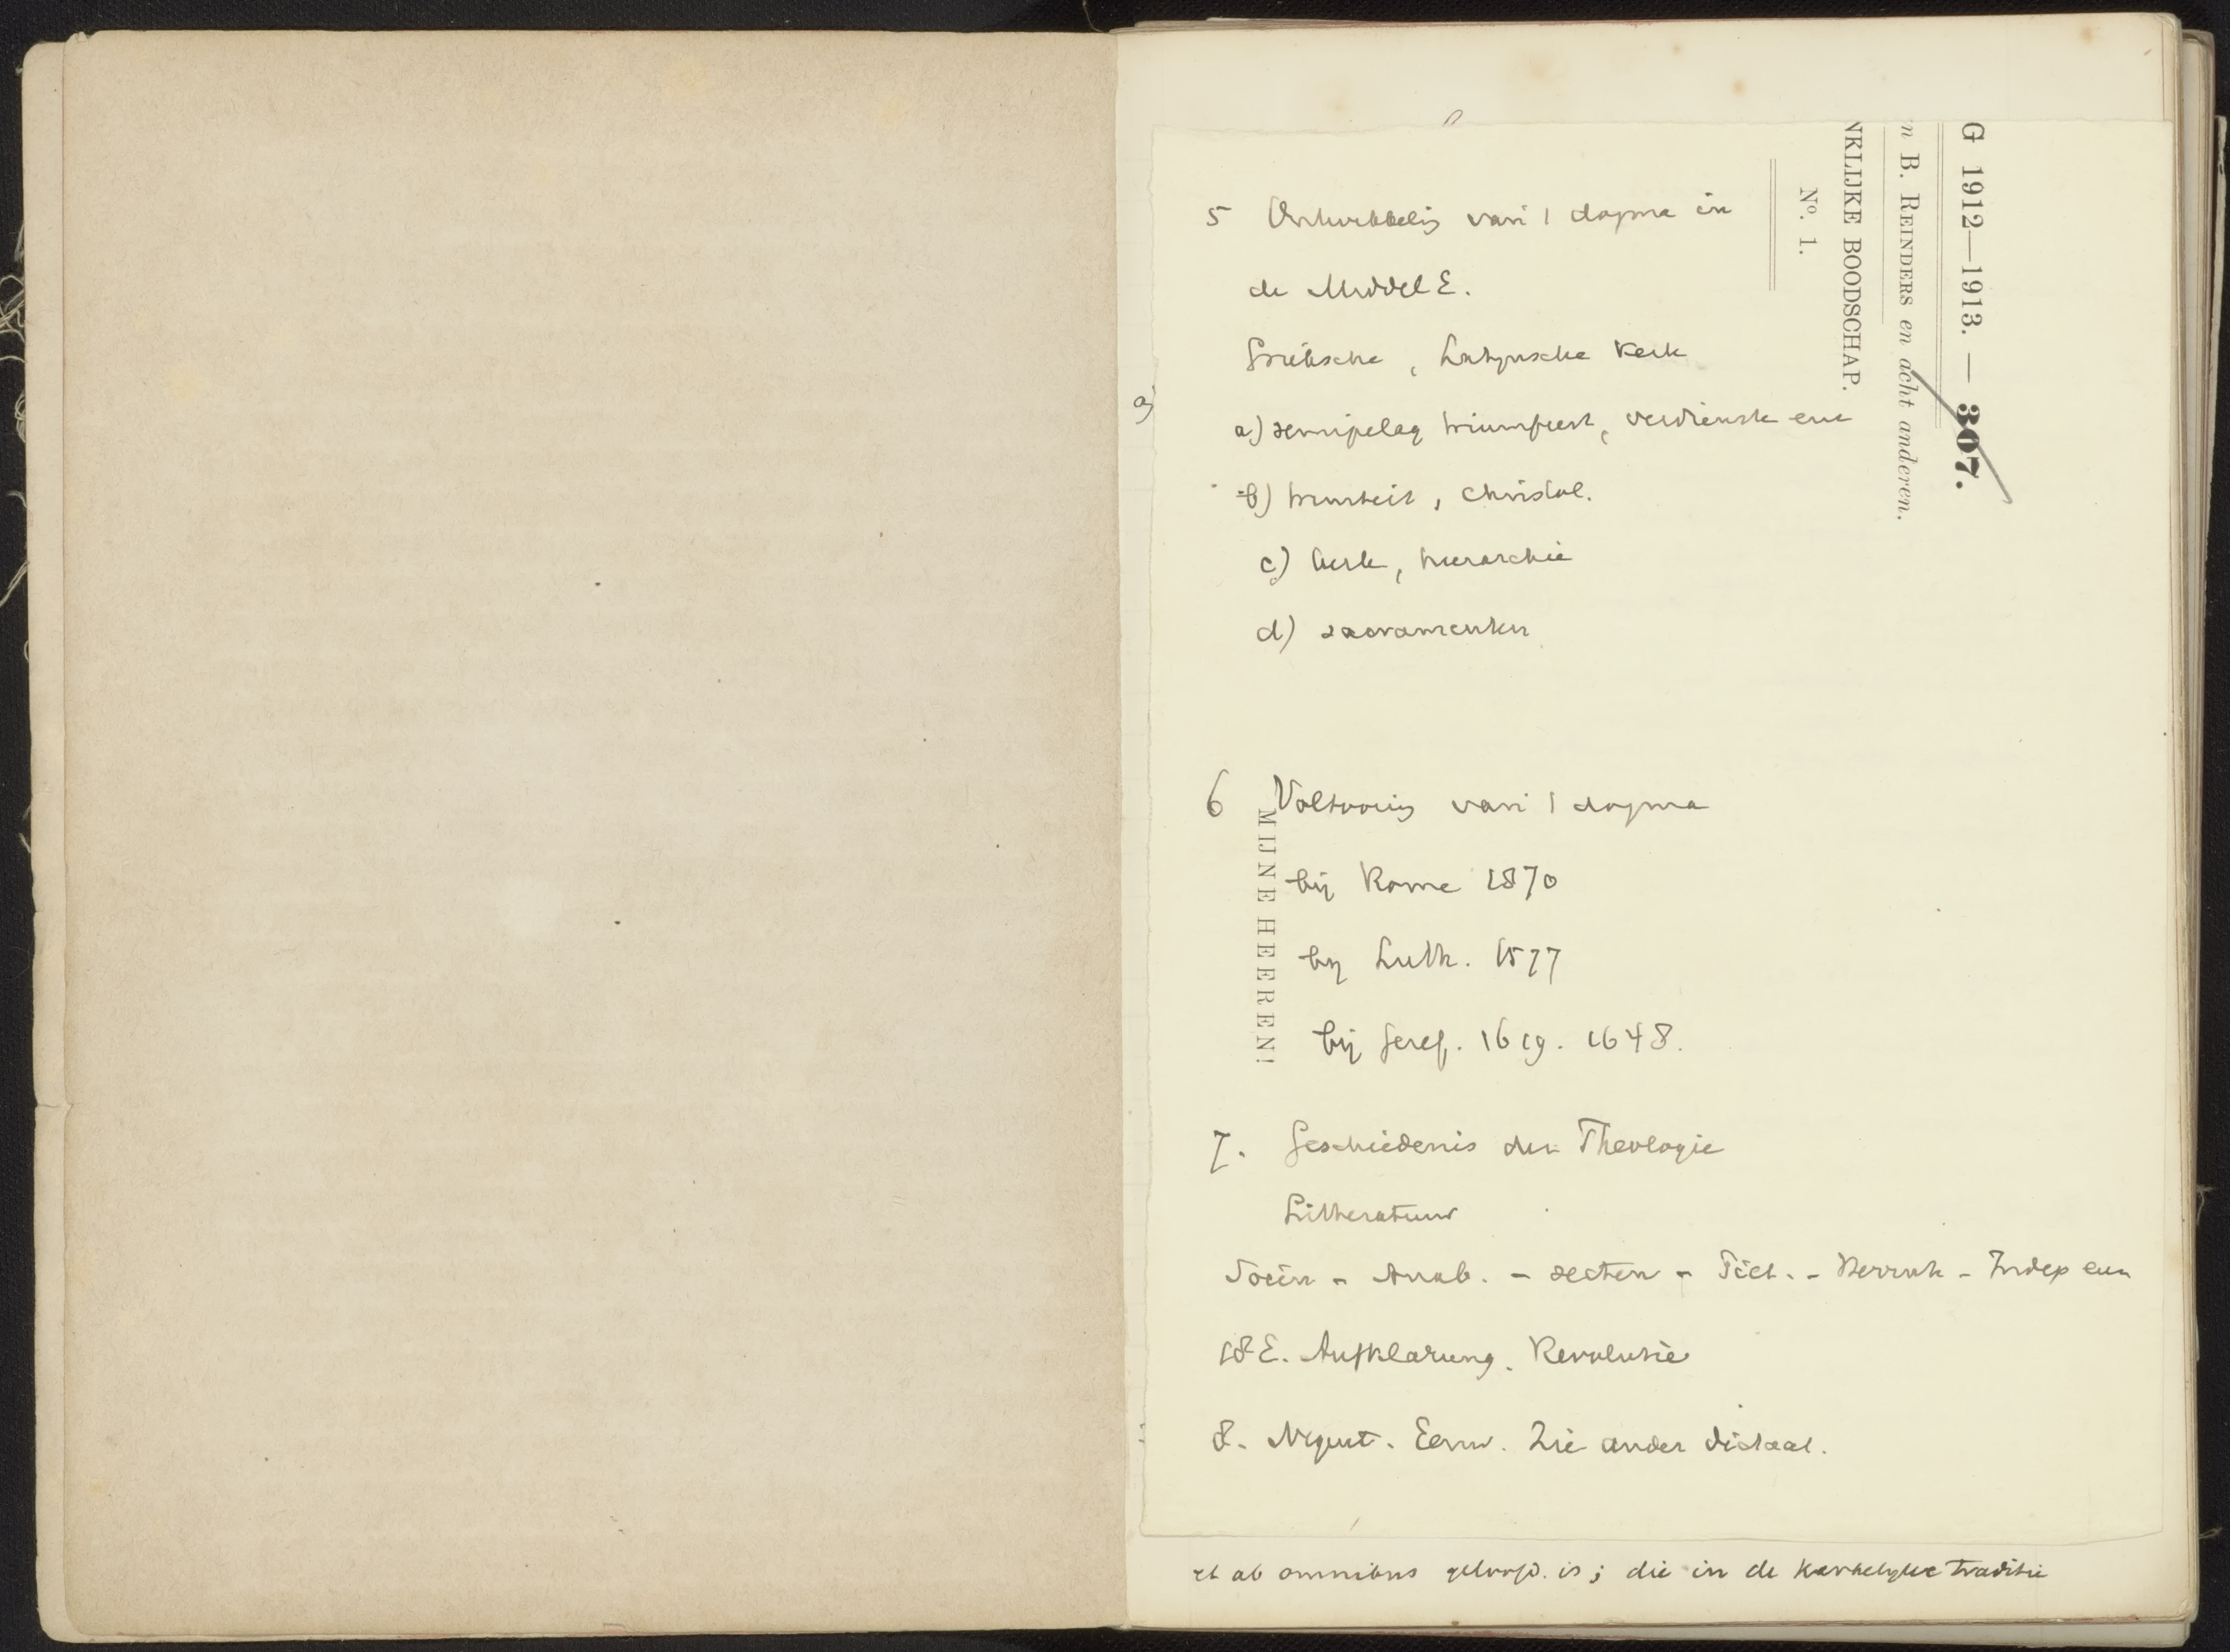 G 1912—1913. — 307.
n B. REINDERS en acht anderen.
NKLIJKE BOODSCHAP.
Nº. 1.
5 Ontwikkelig van 't dogma in
de Middel E.
Grieksche, Latijnsche Kerk
a) semipelag triumfeert, verdienste enz
b) triniteit, christol.
c) kerk, hierarchie
d) sacramenten
6 Voltooiig van 't dogma
MIJNE HEEREN!
bij Rome 1870
bij Luth. 1577
bij Geref. 1619. 1648.
7. Geschiedenis der Theologie
Litteratuur
Socin - Anab. - secten - Piet. - Herrnh - Indep enz
18 E. Aufklarung. Revolutie
8. Negent. Eeuw. Zie ander dictaat.
et ab omnibus geloofd. is; die in de kerkelijke traditie